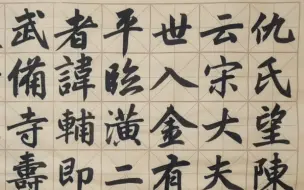 仇氏望陳
云宋大夫
世入金有
平臨潢二
者諱輔即
武備寺壽